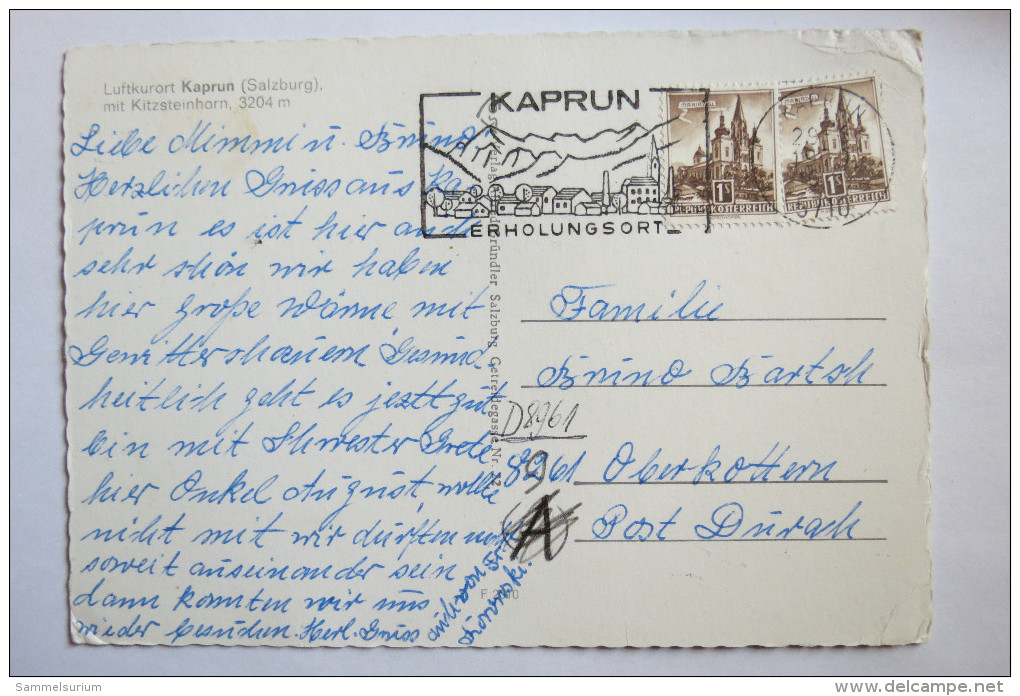 Luftkurort Kaprun (Salzburg),
mit Kitzsteinhorn, 3204 m
Liebe Mimmi u. Bruno
Herzlichen Gruss aus Ka
prun es ist hier auch
sehr schön wir haben
hier große Wärme mit
Gewitterschauern Gesund
heitlich geht es jetzt gut
bin mit Schwester Grete
hier Onkel August wollte
nicht mit wir dürften nicht
soweit auseinander sein
dann könnten wir uns
wieder besuchen. Herl. Gruss
auch von
KAPRUN
ERHOLUNGSORT
MARIAZELL
1S
REPUBLIK ÖSTERREICH
MARIAZELL
1S
REPUBLIK ÖSTERREICH
5710
Gründler Salzburg, Getreidegasse Nr.
Familie
Bruno Bartsch
D8961
8961 Oberkottern
9
A
Post Durach
Sammelsurium
delcampe.net